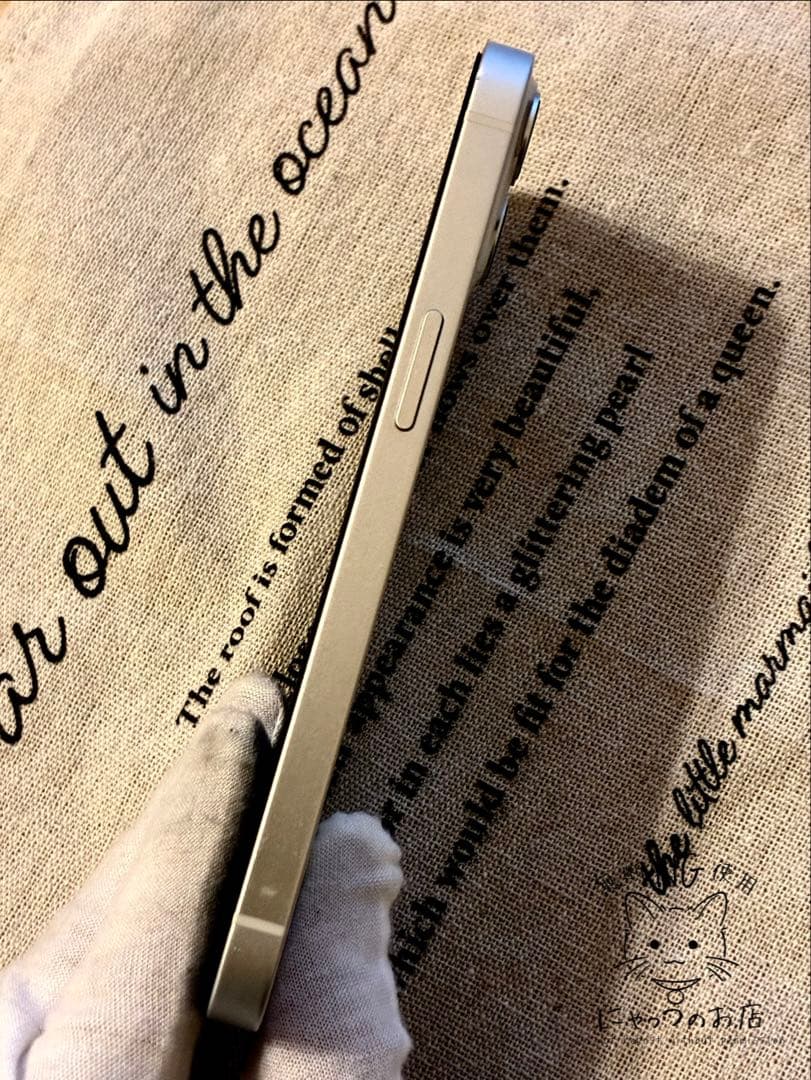 ar out in the ocean
The roof is formed of shell
ows over them.
appearance is very beautiful,
r in each lies a glittering pearl
which would be fit for the diadem of a queen.
the little marma
使用
にゃっつのお店